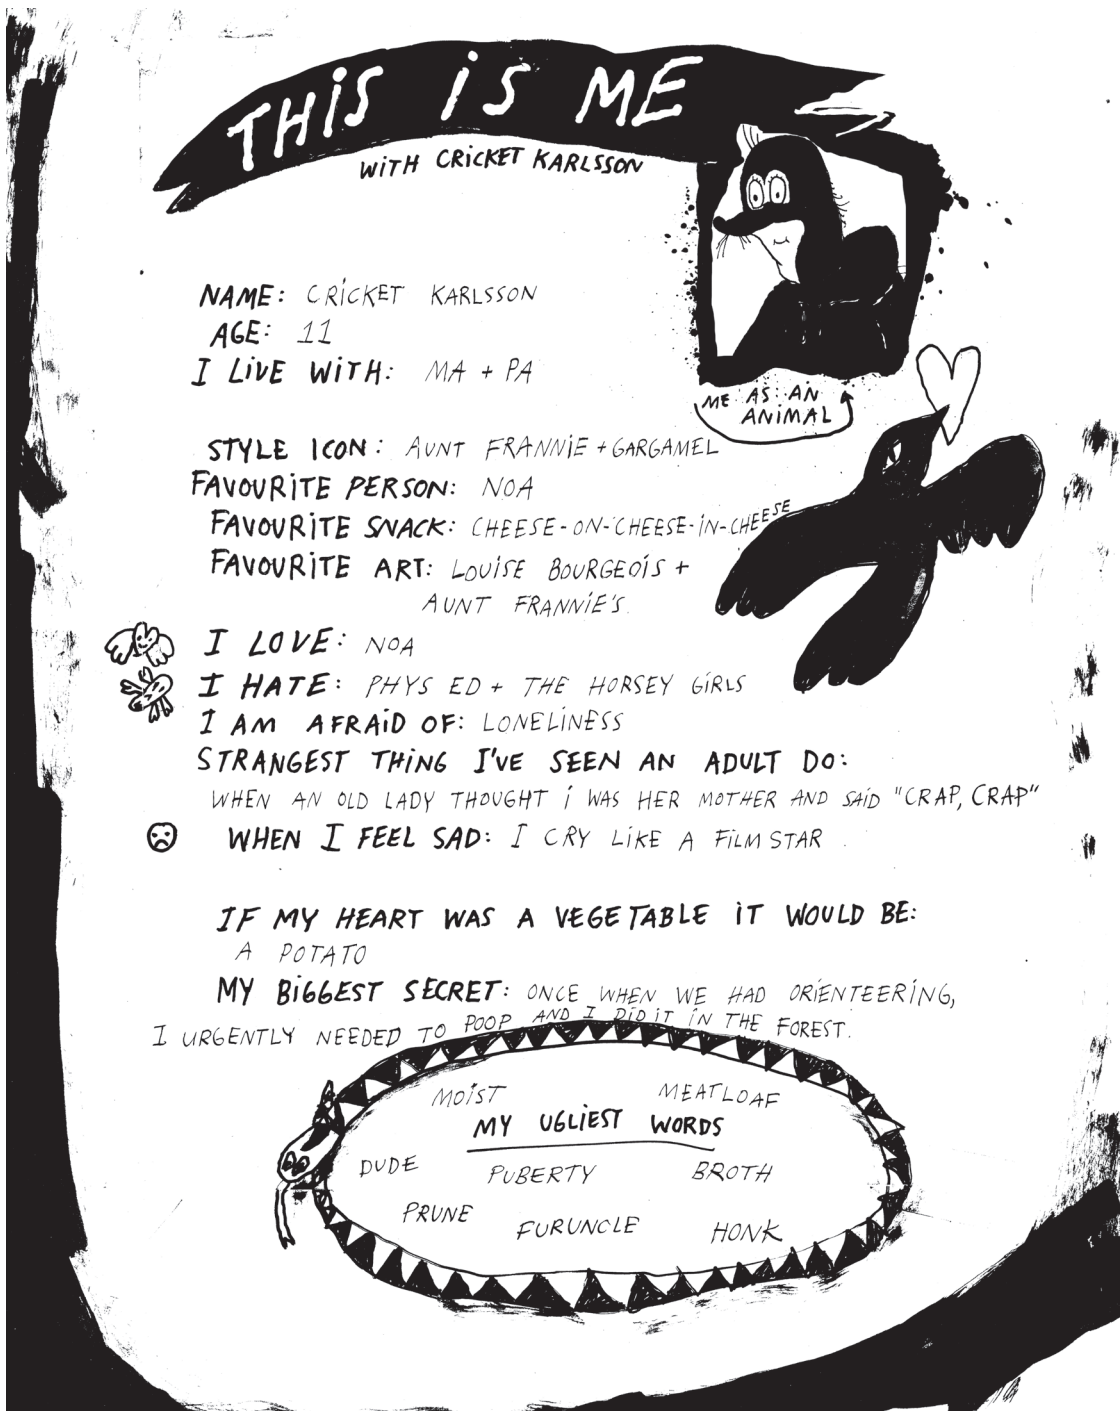 THIS IS ME
WITH CRICKET KARLSSON
NAME: CRICKET KARLSSON
AGE: 11
I LIVE WITH: MA + PA
ME AS AN
ANIMAL
STYLE ICON: AUNT FRANNIE + GARGAMEL
FAVOURITE PERSON: NOA
FAVOURITE SNACK: CHEESE-ON-CHEESE-IN-CHEESE
FAVOURITE ART: LOUISE BOURGEOIS +
AUNT FRANNIE'S
I LOVE: NOA
I HATE: PHYS ED + THE HORSEY GIRLS
I AM AFRAID OF: LONELINESS
STRANGEST THING I'VE SEEN AN ADULT DO:
WHEN AN OLD LADY THOUGHT I WAS HER MOTHER AND SAID "CRAP, CRAP"
WHEN I FEEL SAD: I CRY LIKE A FILM STAR
IF MY HEART WAS A VEGETABLE IT WOULD BE:
A POTATO
MY BIGGEST SECRET: ONCE WHEN WE HAD ORIENTEERING,
I URGENTLY NEEDED TO POOP AND I DID IT IN THE FOREST.
MOIST MEATLOAF
MY UGLIEST WORDS
DUDE PUBERTY BROTH
PRUNE FURUNCLE HONK